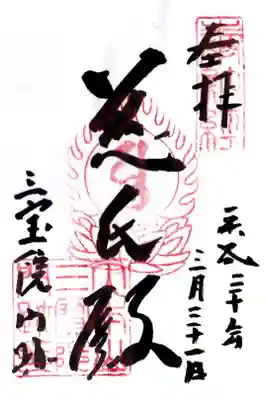 奉拝
平成二十年
三月二十一日
慈氏殿
三宝院門跡